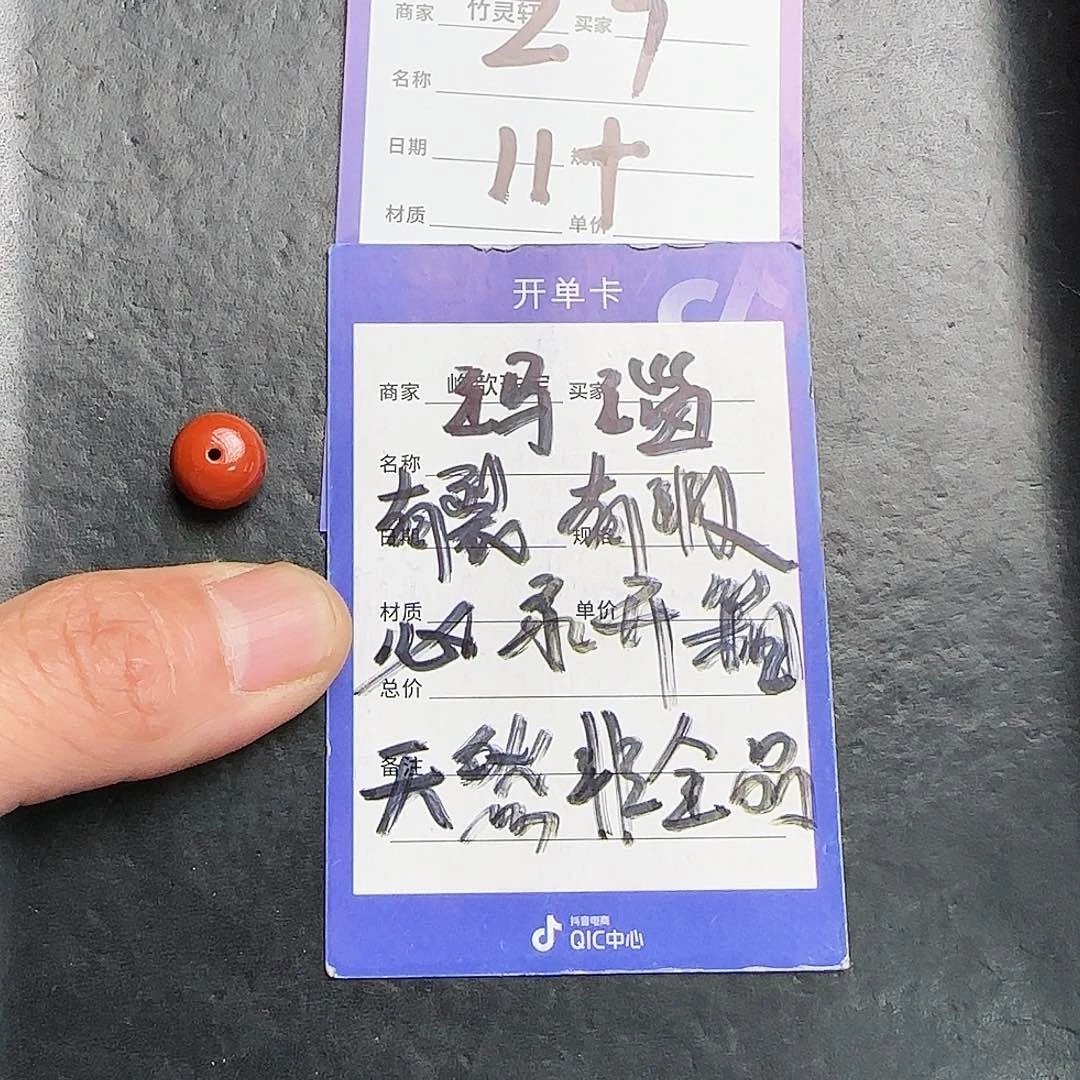 商家 竹灵轩 买家
27
名称
日期 11十 规格
材质 单价
开单卡
商家 买家
玛瑙
名称
有裂 有瑕
日期 规格
材质 单价
必 开箱
总价
备注
天然非全品
抖音电商
QIC中心